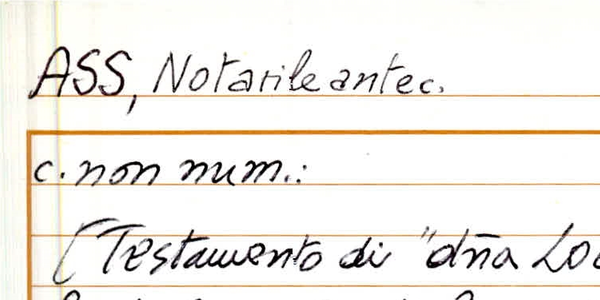 ASS, Notarile antec.
c. non num.:
[Testamento di "dña